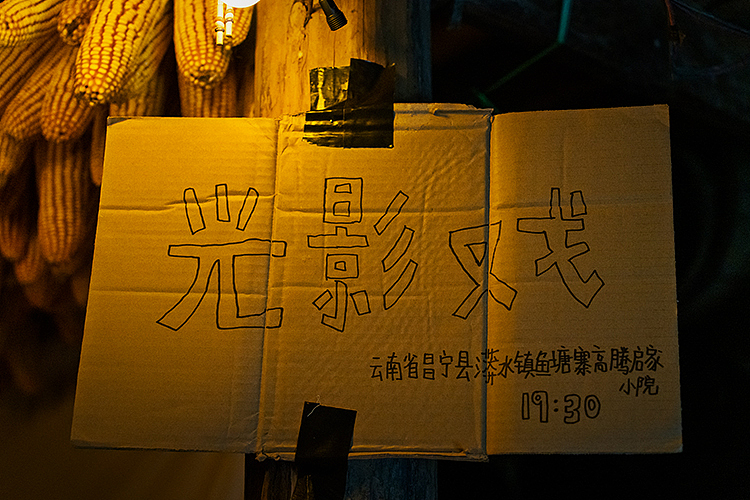 光影戏
云南省昌宁县漭水镇鱼塘寨高腾启家
小院
19:30